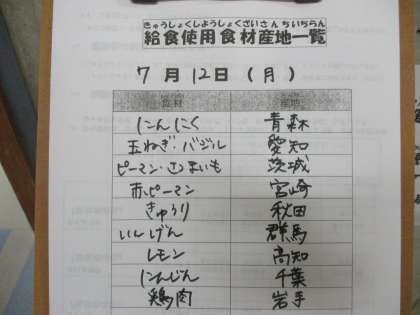 きゅうしょくしようしょくざいさんちいちらん
給食使用食材産地一覧
7月12日(月)
食材 産地
にんにく 青森
玉ねぎ・バジル 愛知
ピーマン・さつまいも 茨城
赤ピーマン 宮崎
きゅうり 秋田
いんげん 群馬
レモン 高知
にんじん 千葉
鶏肉 岩手